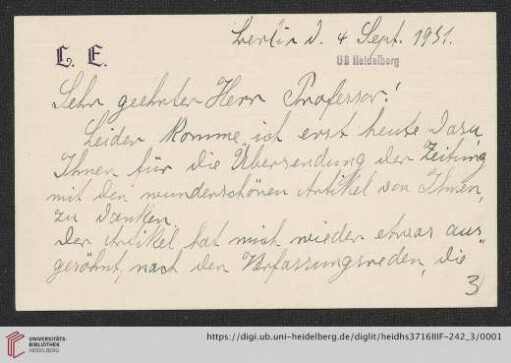 Berlin d. 4 Sept. 1931.
L. E.
UB Heidelberg
Sehr geehrter Herr Professor!
Leider komme ich erst heute dazu
Ihnen für die Übersendung der Zeitung
mit den wunderschönen Artikel von Ihnen,
zu danken.
Der Artikel hat mich wieder etwas aus-
gesöhnt, nach den Verfassungsreden, die
3
UNIVERSITÄTS-
BIBLIOTHEK
HEIDELBERG
https://digi.ub.uni-heidelberg.de/diglit/heidhs3716IIIF-242_3/0001